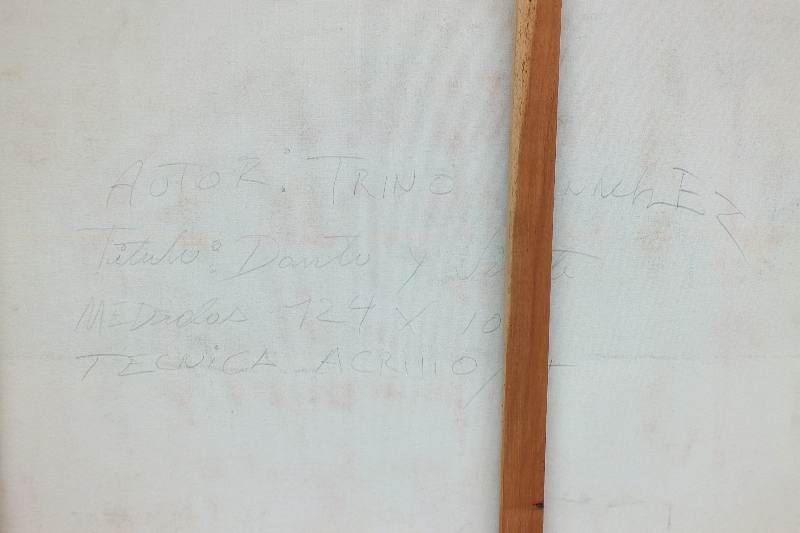 AUTOR: TRINO
Título: Danto y
Medidas 124 X 10
TECNICA ACRILICO/